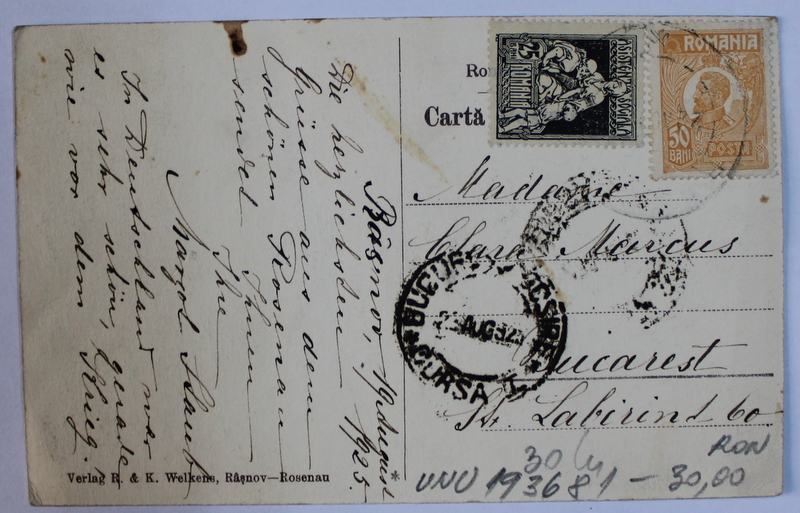 Râșnov, 19 August 1925.
Die herzlichsten
Grüsse aus dem
schönen Rosenau
sendet Ihnen
Ihre
Margot
In Deutschland war
es sehr schön, gerade
wie vor dem Krieg.
Verlag R. & K. Welkens, Râșnov—Rosenau
Cartă
ASISTENȚA SOCIALA
ROMANIA
25
BANI
ROMANIA
50
BANI
POSTA
Madame
Clara Marcus
Bucarest
St. Labirint 60
AUG 925
CURSA
30
VNU 193681 — 30,00
RON